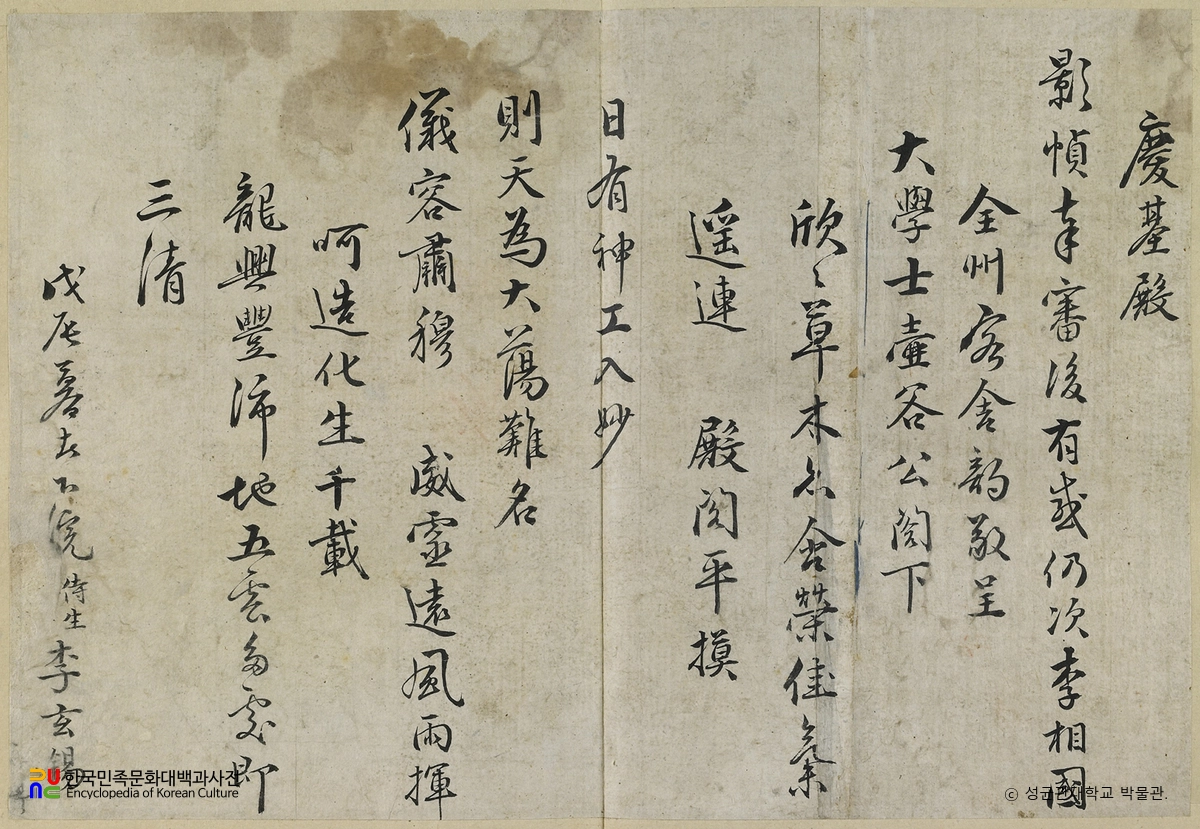 慶基殿
影幀奉審後有感仍次李相國
全州客舍韵敬呈
大學士壺谷公閤下
欣〻草木亦含榮佳氣
遥連 殿閣平摸
日有神工入妙
則天為大蕩難名
儀容肅穆 威靈遠風雨揮
呵造化生千載
龍興豐沛地五雲多處即
三清
戊辰暮春下浣 侍生 李玄錫
한국민족문화대백과사전
Encyclopedia of Korean Culture
ⓒ 성균관대학교 박물관.